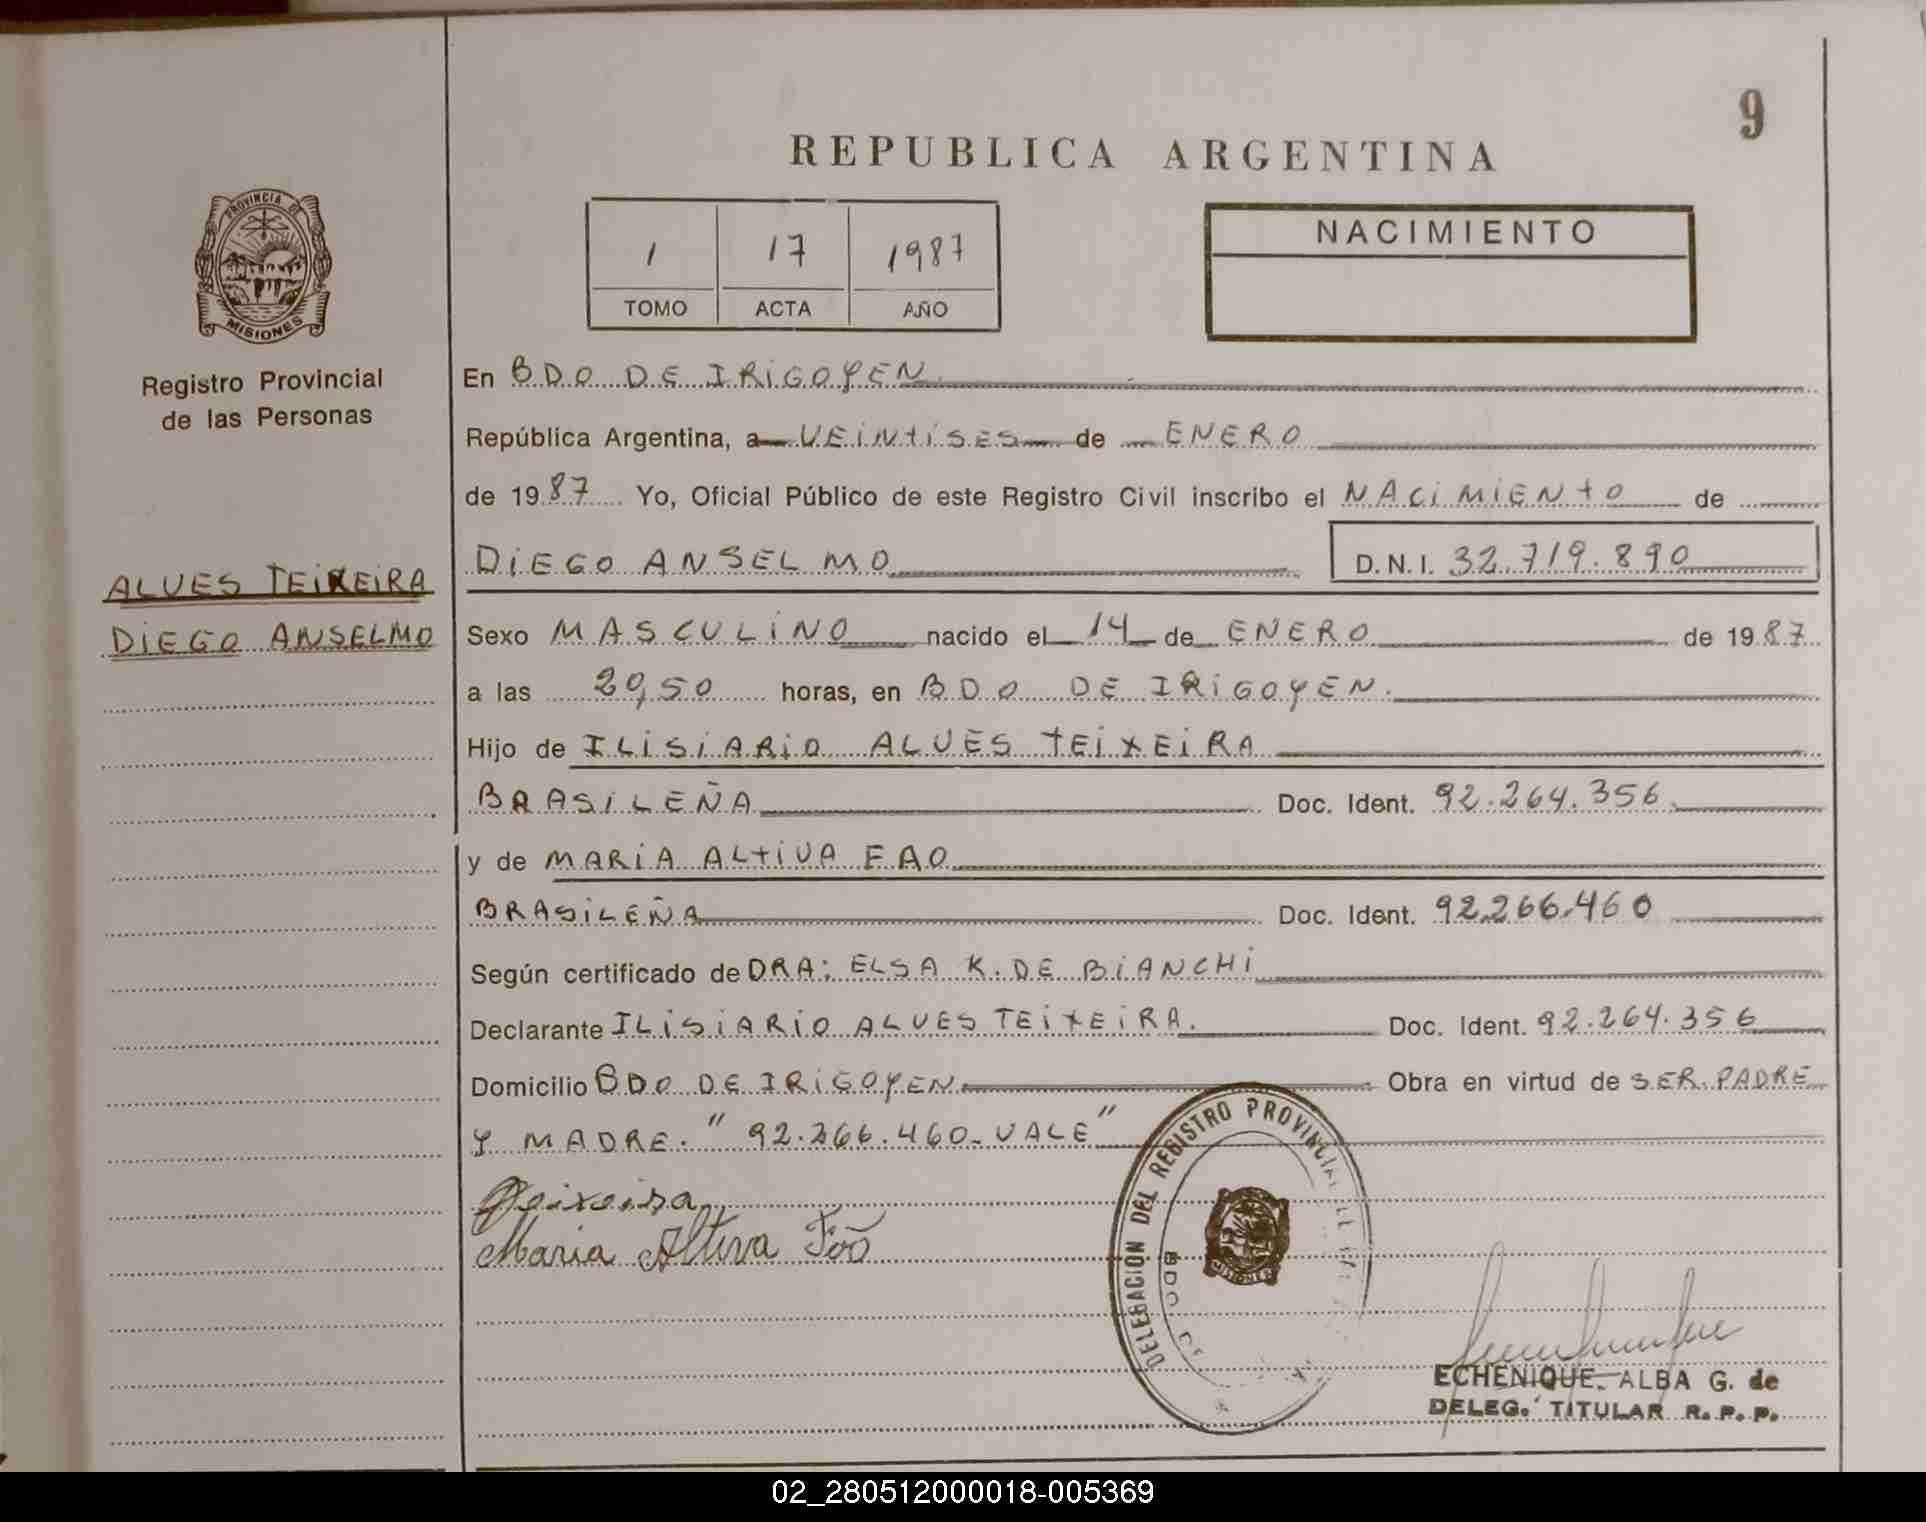 9
REPUBLICA ARGENTINA
PROVINCIA DE
MISIONES
Registro Provincial
de las Personas
1 17 1987
TOMO ACTA AÑO
NACIMIENTO
En BDO DE IRIGOYEN
República Argentina, a VEINTISES de ENERO
de 1987 Yo, Oficial Público de este Registro Civil inscribo el NACIMIENTO de
DIEGO ANSELMO D.N.I. 32.719.890
ALVES TEIXEIRA
DIEGO ANSELMO
Sexo MASCULINO nacido el 14 de ENERO de 1987
a las 20,50 horas, en BDO DE IRIGOYEN.
Hijo de ILISIARIO ALVES TEIXEIRA
BRASILEÑA Doc. Ident. 92.264.356
y de MARIA ALTIVA FAO
BRASILEÑA Doc. Ident. 92.266.460
Según certificado de DRA: ELSA K. DE BIANCHI
Declarante ILISIARIO ALVES TEIXEIRA. Doc. Ident. 92.264.356
Domicilio BDO DE IRIGOYEN. Obra en virtud de SER PADRE
Y MADRE. "92.266.460-VALE"
Teixeira
Maria Altiva Fão
DELEGACION DEL REGISTRO PROVINCIAL DE
BDO DE
MISIONES
ECHENIQUE, ALBA G. de
DELEG. TITULAR R. P. P.
02_280512000018-005369